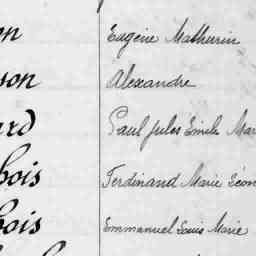 on Eugène Mathurin
son Alexandre
ard Paul Jules Emile Mar
bois Ferdinand Marie Léon
bois Emmanuel Louis Marie